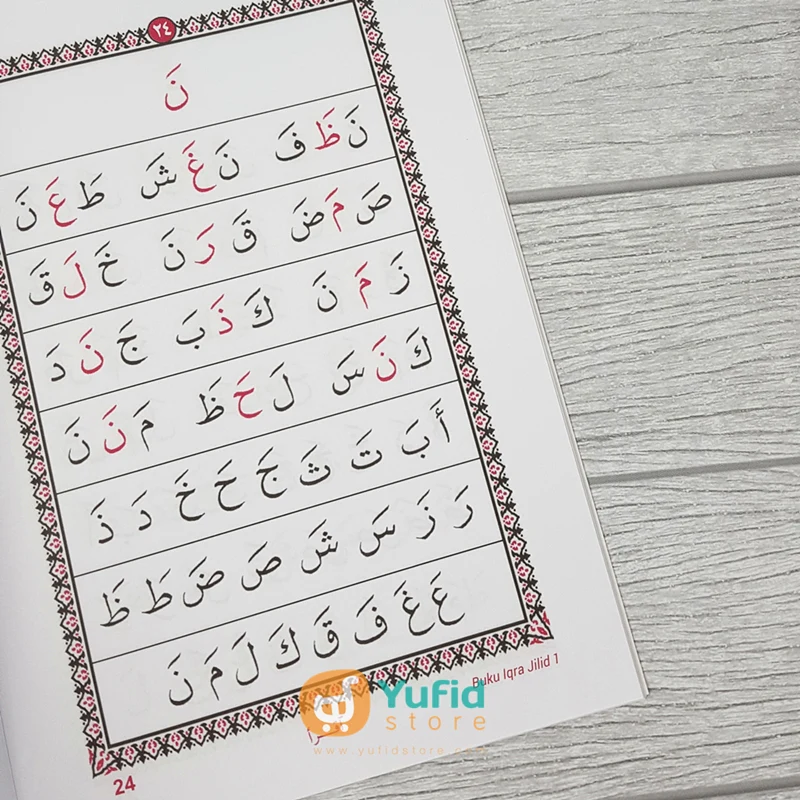 ٢٤
نَ
نَ ظَ فَ نَ غَ شَ طَ عَ نَ
صَ مَ ضَ قَ رَ نَ خَ لَ قَ
زَ مَ نَ كَ ذَ بَ جَ نَ دَ
كَ نَ سَ لَ حَ ظَ مَ نَ نَ
أَ بَ تَ ثَ جَ حَ خَ دَ ذَ
رَ زَ سَ شَ صَ ضَ طَ ظَ
عَ غَ فَ قَ كَ لَ مَ نَ
Buku Iqra Jilid 1
24
Yufid
store
www.yufidstore.com